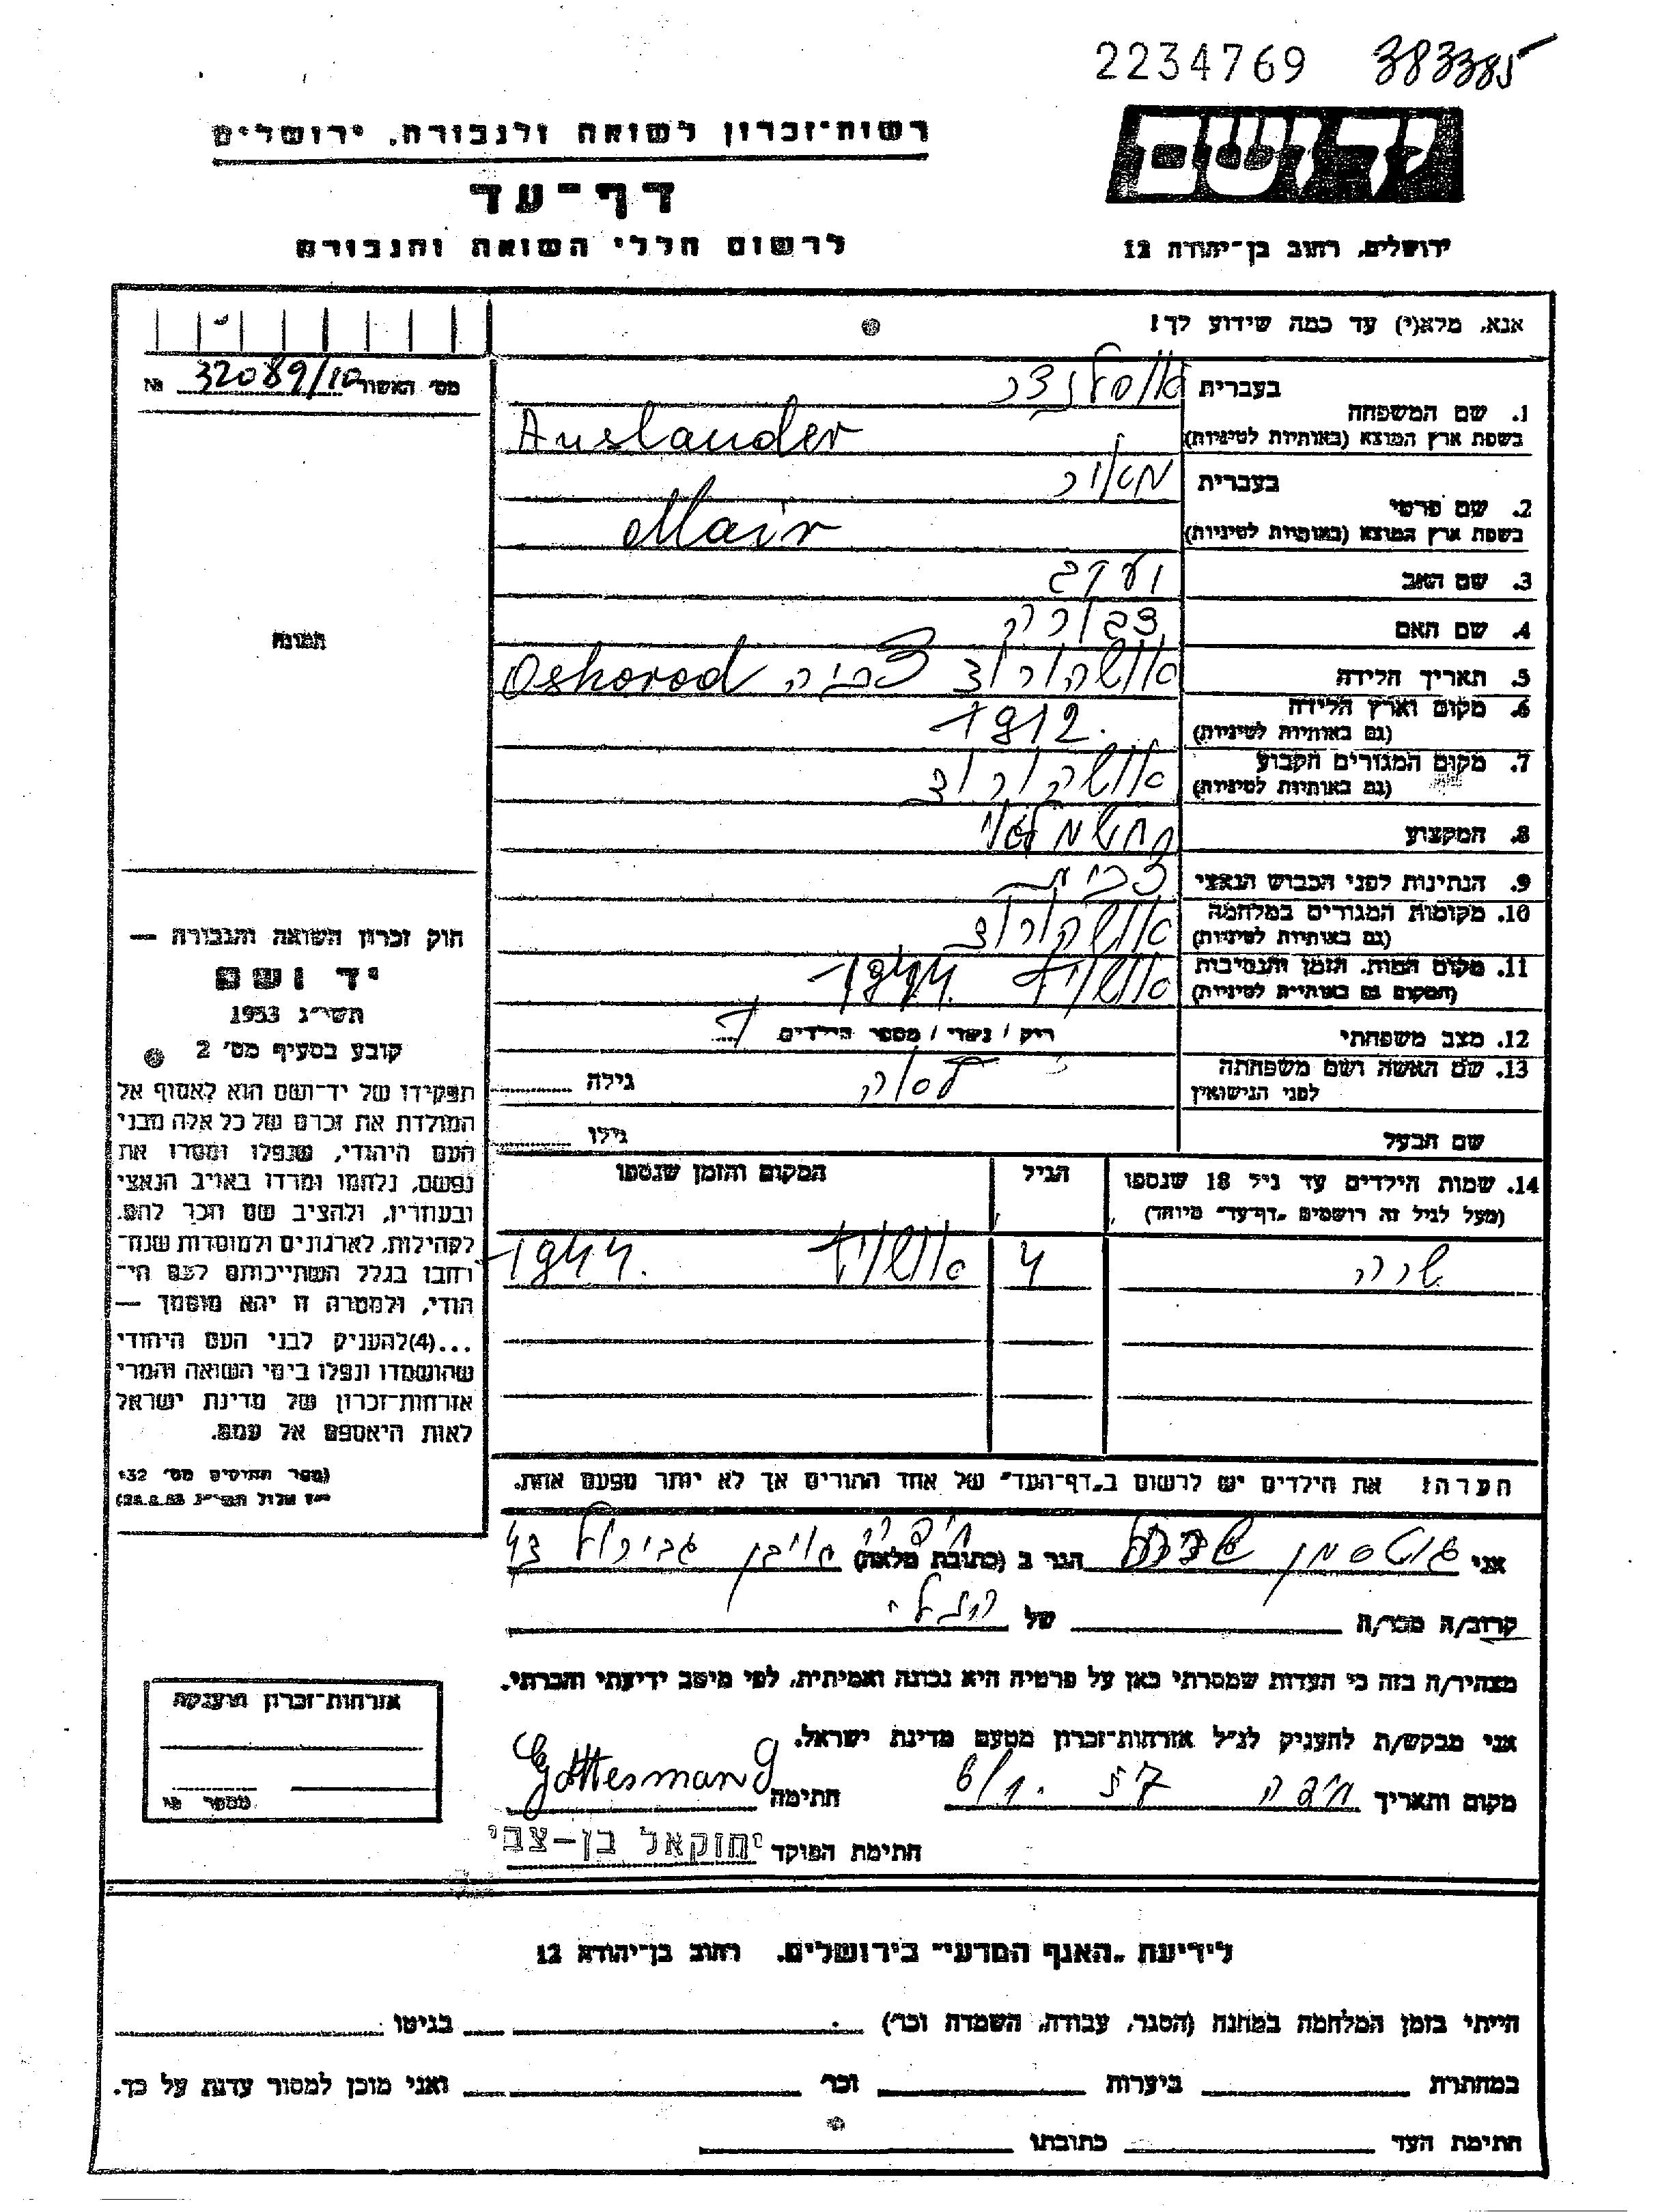 2234769 383385
רשות-זכרון לשואה ולגבורה, ירושלים
יד ושם
דף-עד
לרשום חללי השואה והגבורה
ירושלים, רחוב בן-יהודה 12
אנא, מלא(י) עד כמה שידוע לך!
מס' האשור 32089/10 №
1. שם המשפחה
בעברית אוסלנדר
בשפת ארץ המוצא (באותיות לטיניות) Auslander
2. שם פרטי
בעברית מאיר
בשפת ארץ המוצא (באותיות לטיניות) Mair
3. שם האב יעקב
4. שם האם
5. תאריך הלידה
Oshorod
6. מקום וארץ הלידה
(גם באותיות לטיניות) 1912.
7. מקום המגורים הקבוע
(גם באותיות לטיניות)
8. המקצוע
9. הנתינות לפני הכבוש הנאצי
10. מקומות המגורים במלחמה
(גם באותיות לטיניות)
11. מקום המות, הזמן והנסיבות
(המקום גם באותיות לטיניות) אושויץ 1944.
12. מצב משפחתי
רווק / נשוי / מספר הילדים 1
13. שם האשה ושם משפחתה
לפני הנישואין
גילה
שם הבעל
גילו
14. שמות הילדים עד גיל 18 שנספו
(מעל לגיל זה רושמים "דף-עד" מיוחד)
הגיל
המקום והזמן שנספו
שרה 4 אושויץ 1944.
הערה: את הילדים יש לרשום ב"דף-העד" של אחד ההורים אך לא יותר מפעם אחת.
תמונה
חוק זכרון השואה והגבורה —
יד ושם
תשי"ג 1953
קובע בסעיף מס' 2
תפקידו של יד-ושם הוא לאסוף אל
המולדת את זכרם של כל אלה מבני
העם היהודי, שנפלו ומסרו את
נפשם, נלחמו ומרדו באויב הנאצי
ובעוזריו, ולהציב שם וזכר להם,
לקהילות, לארגונים ולמוסדות שנח-
רבו בגלל השתייכותם לעם הי-
הודי, ולמטרה זו יהא מוסמך —
...(4) להעניק לבני העם היהודי
שהושמדו ונפלו בימי השואה והמרי
אזרחות-זכרון של מדינת ישראל
לאות היאספם אל עמם.
(ספר החוקים מס' 132
י"ז אלול תשי"ג 28.8.53)
אני גוטסמן הגר ב (כתובת מלאה) חיפה אבן גבירול 43
קרוב/ה מכר/ה של
מצהיר/ה בזה כי העדות שמסרתי כאן על פרטיה היא נכונה ואמיתית, לפי מיטב ידיעתי והכרתי.
אני מבקש/ת להעניק לנ"ל אזרחות-זכרון מטעם מדינת ישראל.
מקום ותאריך חיפה 57 6/1. חתימה Gottesman G
חתימת הפוקד יחזקאל בן-צבי
אזרחות-זכרון הוענקה
מספר סי
לידיעת "האגף המדעי" בירושלים, רחוב בן-יהודא 12
הייתי בזמן המלחמה במחנה (הסגר, עבודה, השמדה וכו') בגיטו
במחתרת ביערות וכו' ואני מוכן למסור עדות על כך.
חתימת העד כתובתו